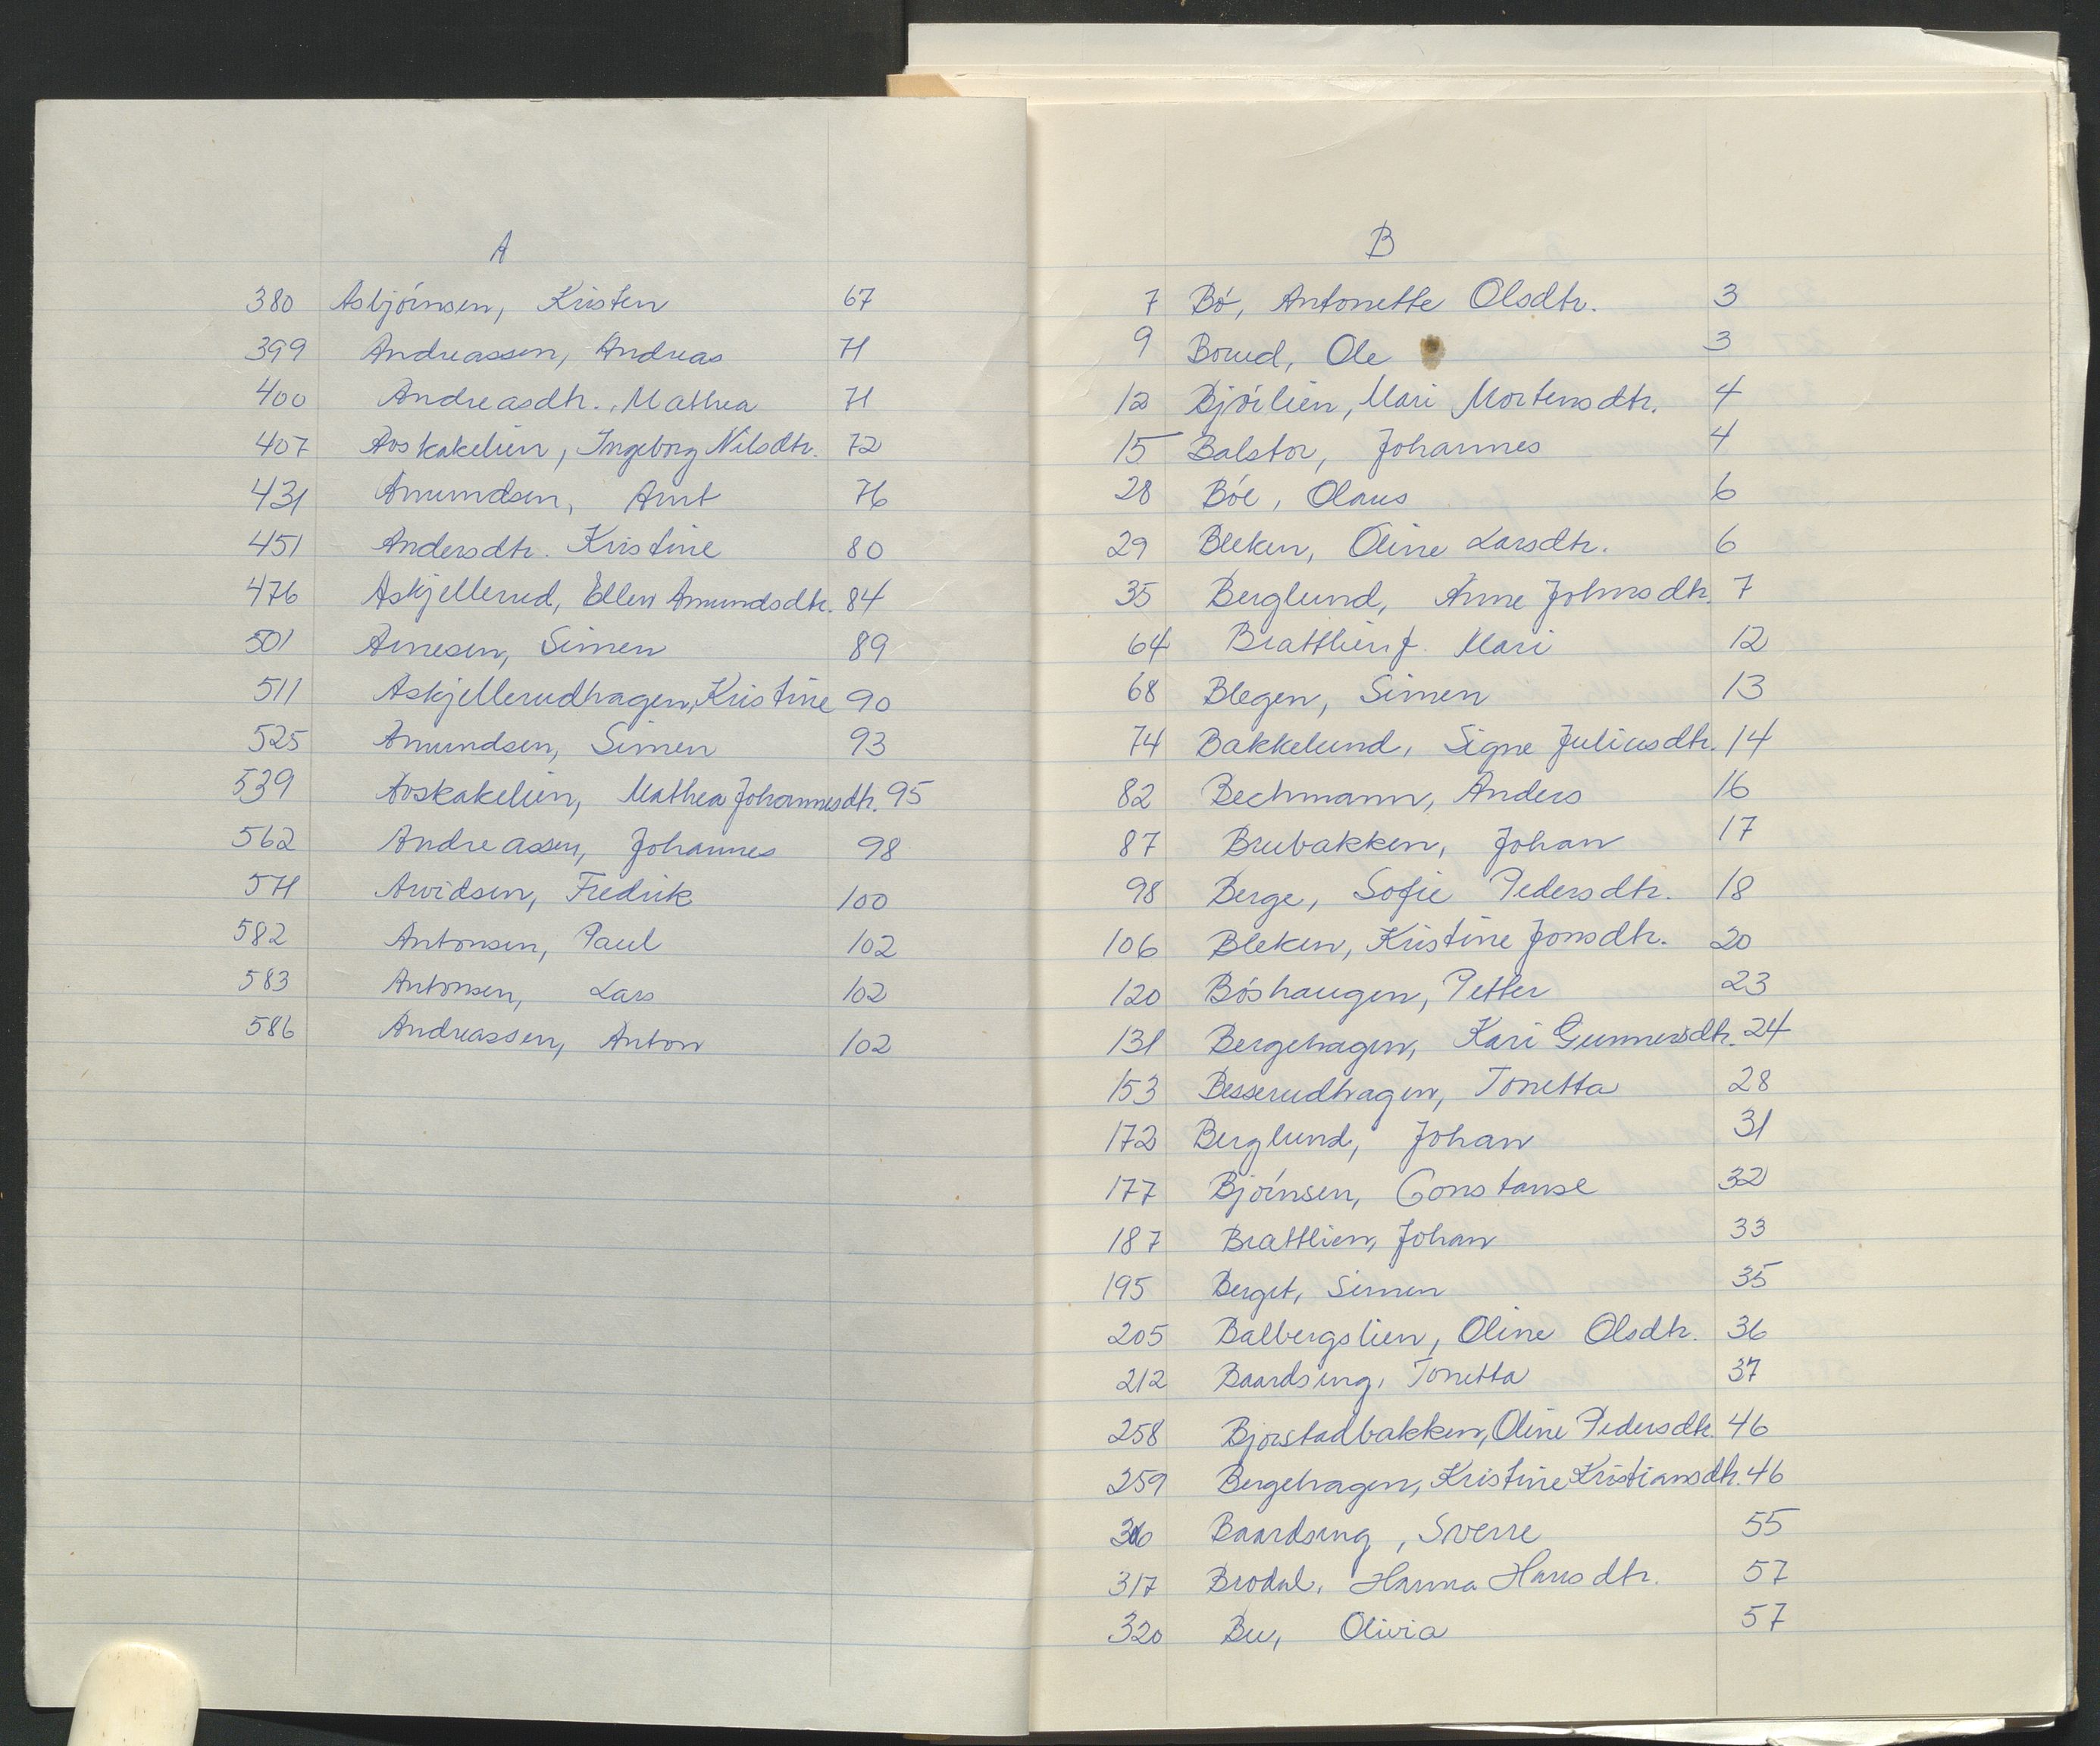 A
380 Asbjørnsen, Kristen 67
399 Andreassen, Andreas 71
400 Andreasdtr., Mathea 71
407 Avskakelien, Ingeborg Nilsdtr. 72
431 Amundsen, Amt 76
451 Andersdtr. Kristine 80
476 Askjellerud, Ellen Amundsdtr. 84
501 Arnesen, Simen 89
511 Askjellerudhagen, Kristine 90
525 Amundsen, Simen 93
539 Avskakelien, Mathea Johannesdtr. 95
562 Andreassen, Johannes 98
571 Arvidsen, Fredrik 100
582 Antonsen, Paul 102
583 Antonsen, Lars 102
586 Andreassen, Anton 102
B
7 Bø, Antonette Olsdtr. 3
9 Borud, Ole 3
12 Bjørlien, Mari Mortensdtr. 4
15 Balstor, Johannes 4
28 Bøe, Olaus 6
29 Bleken, Oline Larsdtr. 6
35 Berglund, Anne Johnsdtr. 7
64 Brattlien, Mari 12
68 Blegen, Simen 13
74 Bakkelund, Signe Juliusdtr. 14
82 Bechmann, Anders 16
87 Brubakken, Johan 17
98 Berge, Sofie Pedersdtr. 18
106 Bleken, Kristine Jonsdtr. 20
120 Bøshaugen, Petter 23
131 Bergehagen, Kari Gunnersdtr. 24
153 Besserudhagen, Tonetta 28
172 Berglund, Johan 31
177 Bjørnsen, Constanse 32
187 Brattlien, Johan 33
195 Berget, Simen 35
205 Balbergslien, Oline Olsdtr. 36
212 Baardseng, Tonetta 37
258 Bjørstadbakken, Oline Pedersdtr. 46
259 Bergehagen, Kristine Kristiansdtr. 46
306 Baardseng, Sverre 55
317 Brodal, Hanna Hansdtr. 57
320 Bu, Olivia 57